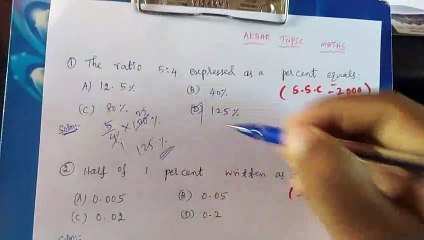 AKBAR TNPSC MATHS
① The ratio 5:4 expressed as a percent equals:
A) 12.5% (B) 40% (S.S.C - 2000)
(C) 80% (D) 125%
Soln:
5/4 × 100%
125%
② Half of 1 percent written as
(A) 0.005 (B) 0.05
(C) 0.02 (D) 0.2
Soln: